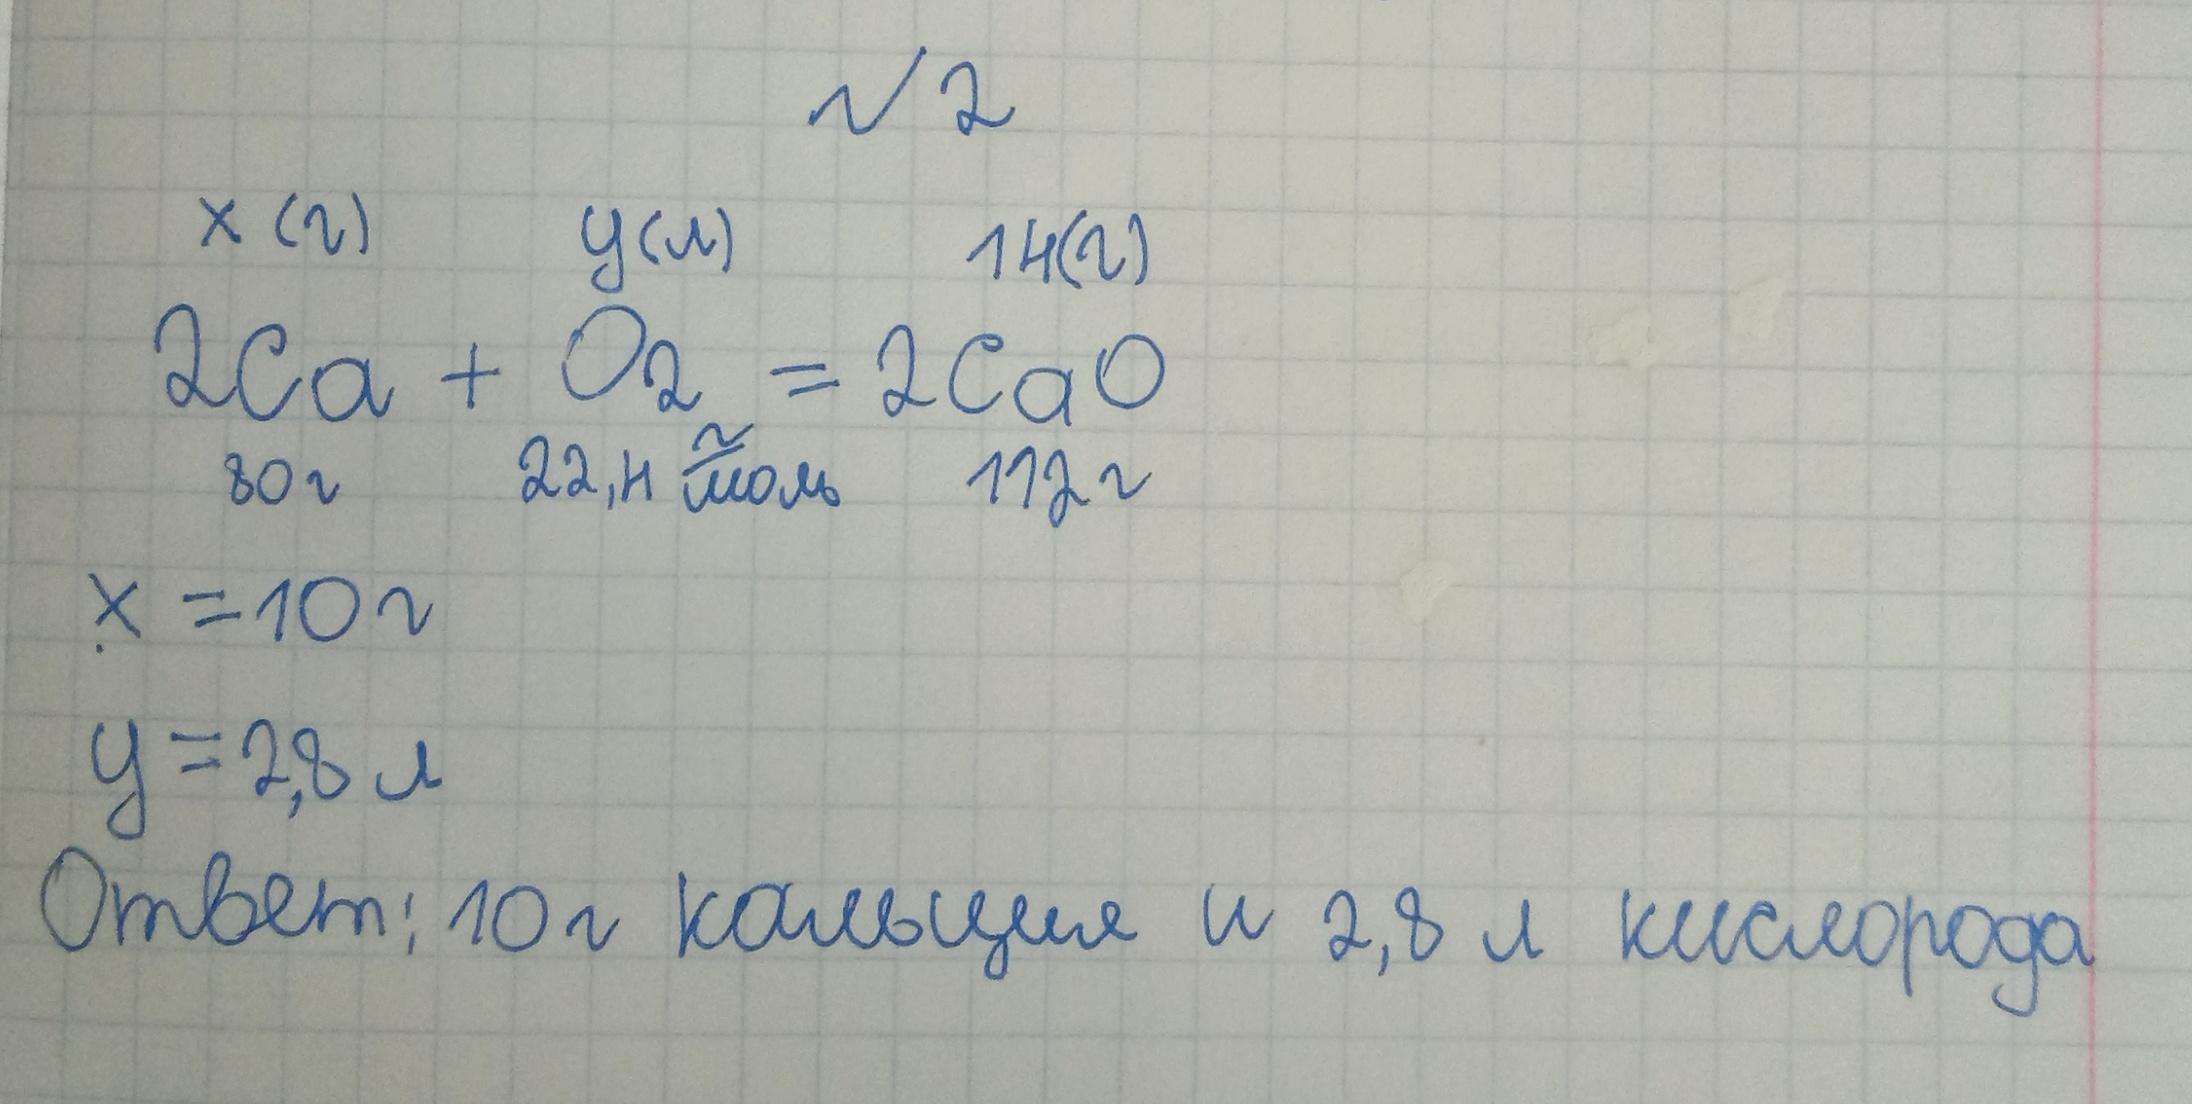 √ 2
x (г) y(л) 14(г)
2Ca + O2 = 2CaO
80г 22,4 г/моль 112г
x = 10 г
y = 2,8 л
Ответ: 10 г кальция и 2,8 л кислорода